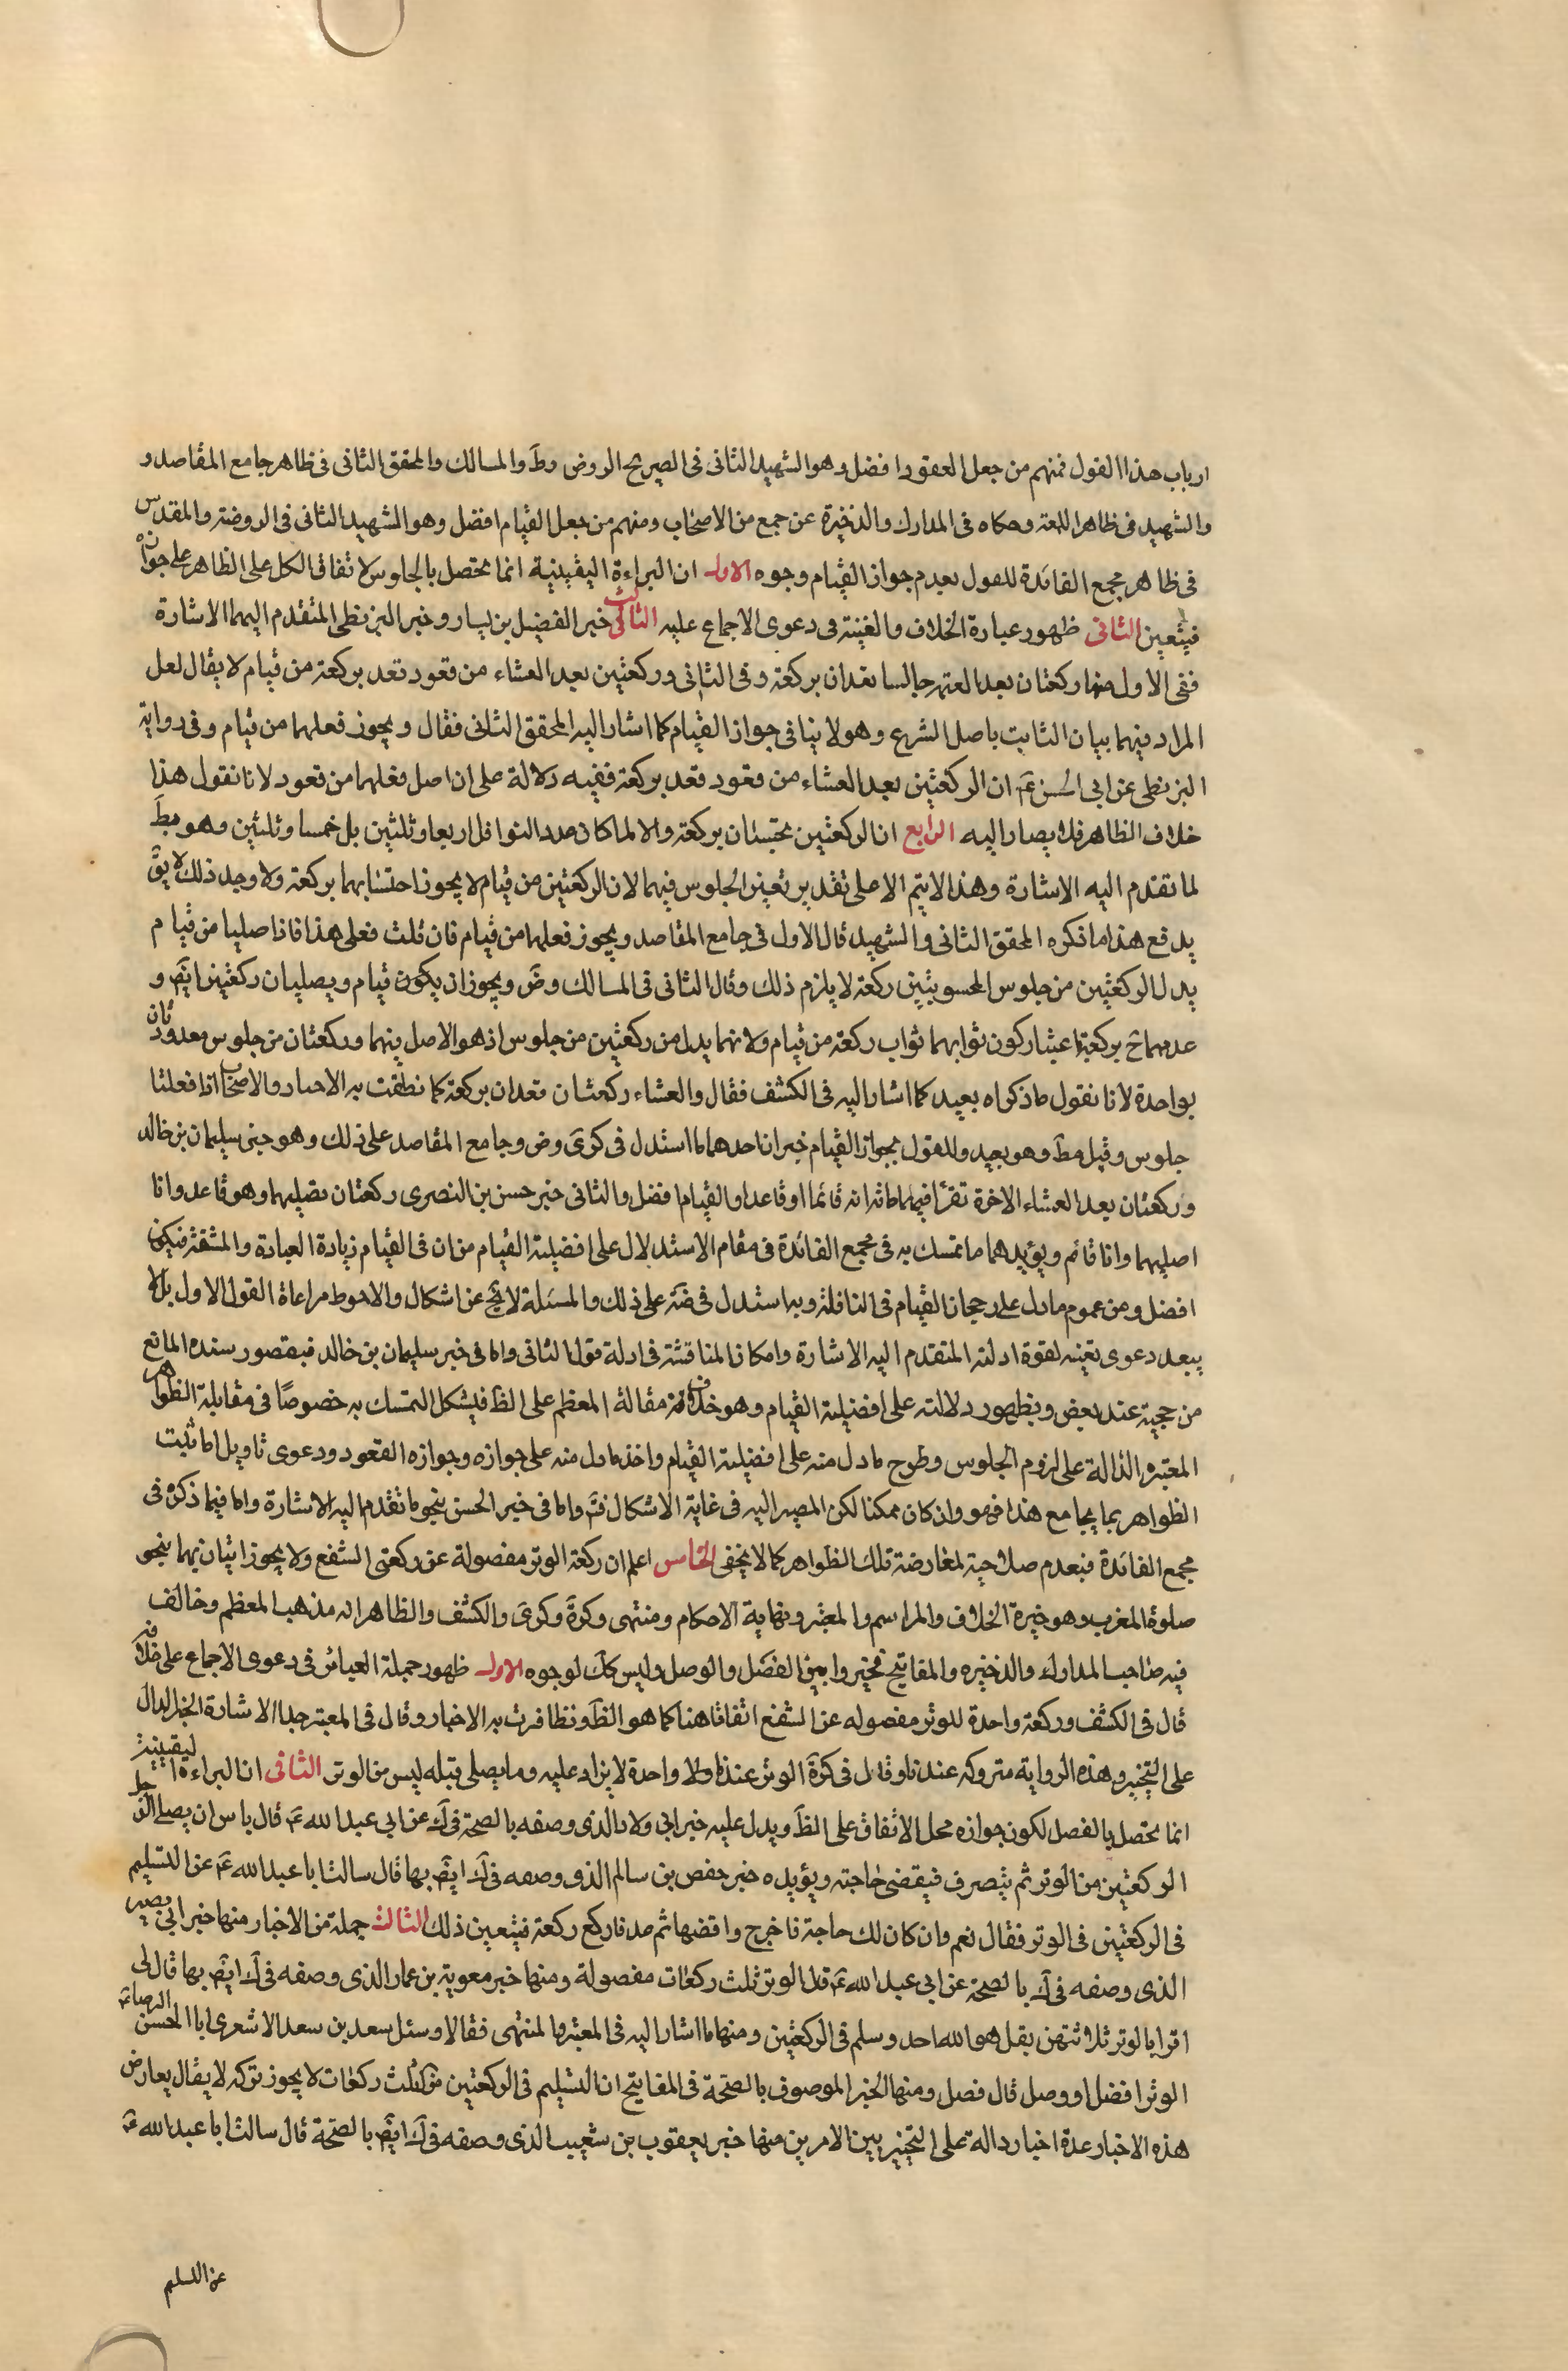 ارباب هذا القول فمنهم من جعل العقود افضل وهو الشهيد الثانى فى الصريح الروض وظَ والمسالك والمحقق الثانى فى ظاهر جامع المقاصد و
والشهيد فى ظاهر اللمعة وحكاه فى المدارك والذخيرة عن جمع من الاصحاب ومنهم من جعل القيام افضل وهو الشهيد الثانى فى الروضة والمقدس
فى ظاهر مجمع الفائدة للقول بعدم جواز القيام وجوه الاول ان البراءة اليقينية انما تحصل بالجلوس لاتفاق الكل على الظاهر على جوازه
فيتعين الثانى ظهور عبارة الخلاف والغنية فى دعوى الاجماع عليه الثالث خبر الفضيل بن يسار وخبر البزنطى المتقدم اليهما الاشارة
ففى الاول منها ركعتان بعد العتمة جالسا تعدان بركعة وفى الثانى وركعتين بعد العشاء من قعود تعد بركعة من قيام لا يقال لعل
المراد فيهما بيان الثابت باصل الشرع وهو لا ينافى جواز القيام كما اشار اليه المحقق الثانى فقال ويجوز فعلهما من قيام وفى رواية
البزنطى عن ابى الحسن عَ ان الركعتين بعد العشاء من قعود تعد بركعة ففيه دلالة على ان اصل فعلهما من قعود لانا نقول هذا
خلاف الظاهر فلا يصار اليه الرابع ان الركعتين تحتسبان بركعة والا لما كان عدد النوافل اربعا وثلثين بل خمسا وثلثين وهو مبطَ
لما تقدم اليه الاشارة وهذا لا يتم الا على تقدير تعين الجلوس فيهما لان الركعتين من قيام لا يجوز احتسابهما بركعة ولا وجه لذلك لا يقَ
يدفع هذا ما ذكره المحقق الثانى والشهيد قال الاول فى جامع المقاصد ويجوز فعلهما من قيام فان قلت فعلى هذا فاذا صليا من قيام
بدل الركعتين من جلوس المحسوبتين ركعة لا يلزم ذلك وقال الثانى فى المسالك وضَ ويجوز ان يكون قيام ويصليان ركعتين ايضَ و
عدهما حَ بركعة باعتبار كون ثوابهما ثواب ركعة من قيام ولانهما بدل من ركعتين من جلوس اذ هو الاصل فيهما وركعتان من جلوس معدودتان
بواحدة لانا نقول ما ذكراه بعيد كما اشار اليه فى الكشف فقال والعشاء ركعتان تعدان بركعة كما نطقت به الاخبار والاصحاب اذا فعلتا
جلوس وقيل مطَ وهو بعيد وللقول بجواز القيام خبران احدهما ما استدل فى كرىَ وض وجامع المقاصد على ذلك وهو خبر سليمان بن خالد
وركعتان بعد العشاء الاخرة تقرأ فيهما مائة اية قائما او قاعدا والقيام افضل والثانى خبر حسن بن النصرى ركعتان تصليهما وهو قاعد وانا
اصليهما وانا قائم ويؤيدهما ما تمسك به فى مجمع الفائدة فى مقام الاستدلال على افضلية القيام من ان فى القيام زيادة العبادة والمشقة فيكون
افضل ومن عموم ما دل على رجحان القيام فى النافلة وبه استدل فى ضَه على ذلك والمسئلة لا تخ عن اشكال والاحوط مراعاة القول الاول بل لا
يبعد دعوى تعينه لقوة ادلته المتقدم اليه الاشارة وامكان المناقشة فى ادلة قول الثانى واما فى خبر سليمان بن خالد فبقصور سنده المانع
من حجيته عند بعض وبظهور دلالته على افضلية القيام وهو خلاف مقالة المعظم على الظَ فيشكل التمسك به خصوصًا فى مقابلة الظواهر
المعتبرة الدالة على لزوم الجلوس وطرح ما دل منه على افضلية القيام واخذ ما دل منه على جوازه وجوازه القعود ودعوى تاويل ما ثبت
الظواهر بما يجامع هذا فهو وان كان ممكنا لكن المصير اليه فى غاية الاشكال فتَم واما فى خبر الحسن بنحو ما تقدم اليه الاشارة واما فيما ذكره فى
مجمع الفائدة فبعدم صلاحية لمعارضة تلك الظواهر كما لا يخفى الخامس اعلم ان ركعة الوتر مفصولة عن ركعتى الشفع ولا يجوز اتيانهما بنحو
صلوة المغرب وهو خيرة الخلاف والمراسم والمعتبر ونهاية الاحكام ومنتهى وكرَة وكرىَ والكشف والظاهر انه مذهب المعظم وخالف
فيه صاحب المدارك والذخيره والمفاتيح فخيروا بين الفصل والوصل وليس كك لوجوه الاول ظهور جملة العبائر فى دعوى الاجماع على خلافه
قال فى الكشف وركعة واحدة للوتر مفصوله عن الشفع اتفاقا هنا كما هو الظَ وتظافرت به الاخبار وقال فى المعتبر جدا الاشارة الخبر الدال
على التخيير وهذه الرواية متروكه عندنا وقال فى كرَة الوتر عندنا ولا واحدة لا يزاد عليه وما يصلى قبله ليس من الوتر الثانى ان البراءة اليقينية
انما تحصل بالفصل لكون جوازه محل الاتفاق على الظَ ويدل عليه خبر ابى ولاد الذى وصفه بالصحة فى كَ عن ابى عبد الله عَ قال باس ان يصلى الرجل
الركعتين من الوتر ثم ينصرف فيقضى حاجته ويؤيده خبر حفص بن سالم الذى وصفه فى كَ ايضَ بها قال سالت ابا عبد الله عَ عن التسليم
فى الركعتين فى الوتر فقال نعم وان كان لك حاجة فاخرج واقضها ثم عد فاركع ركعة فيتعين ذلك الثالث جملة من الاخبار منها خبر ابى بصير
الذى وصفه فى كَ بالصحة عن ابى عبد الله عَ قال الوتر ثلث ركعات مفصولة ومنها خبر معوية بن عمار الذى وصفه فى كَ ايضَ بها قال لى
اقرا بالوتر ثلاثتهن بقل هو الله احد وسلم فى الركعتين ومنها ما اشار اليه فى المعتبر والمنتهى فقالا وسئل سعد بن سعد الاشعرى ابا الحسن الرضا عَ
الوتر افضل او وصل قال فصل ومنها الخبر الموصوف بالصحة فى المفاتيح ان التسليم فى الركعتين من ثلث ركعات لا يجوز تركه لا يقال يعارض
هذه الاخبار عدة اخبار دالة على التخيير بين الامرين منها خبر يعقوب بن شعيب الذى وصفه فى كَ ايضَ بالصحة قال سالت ابا عبد الله عَ
عن التسليم